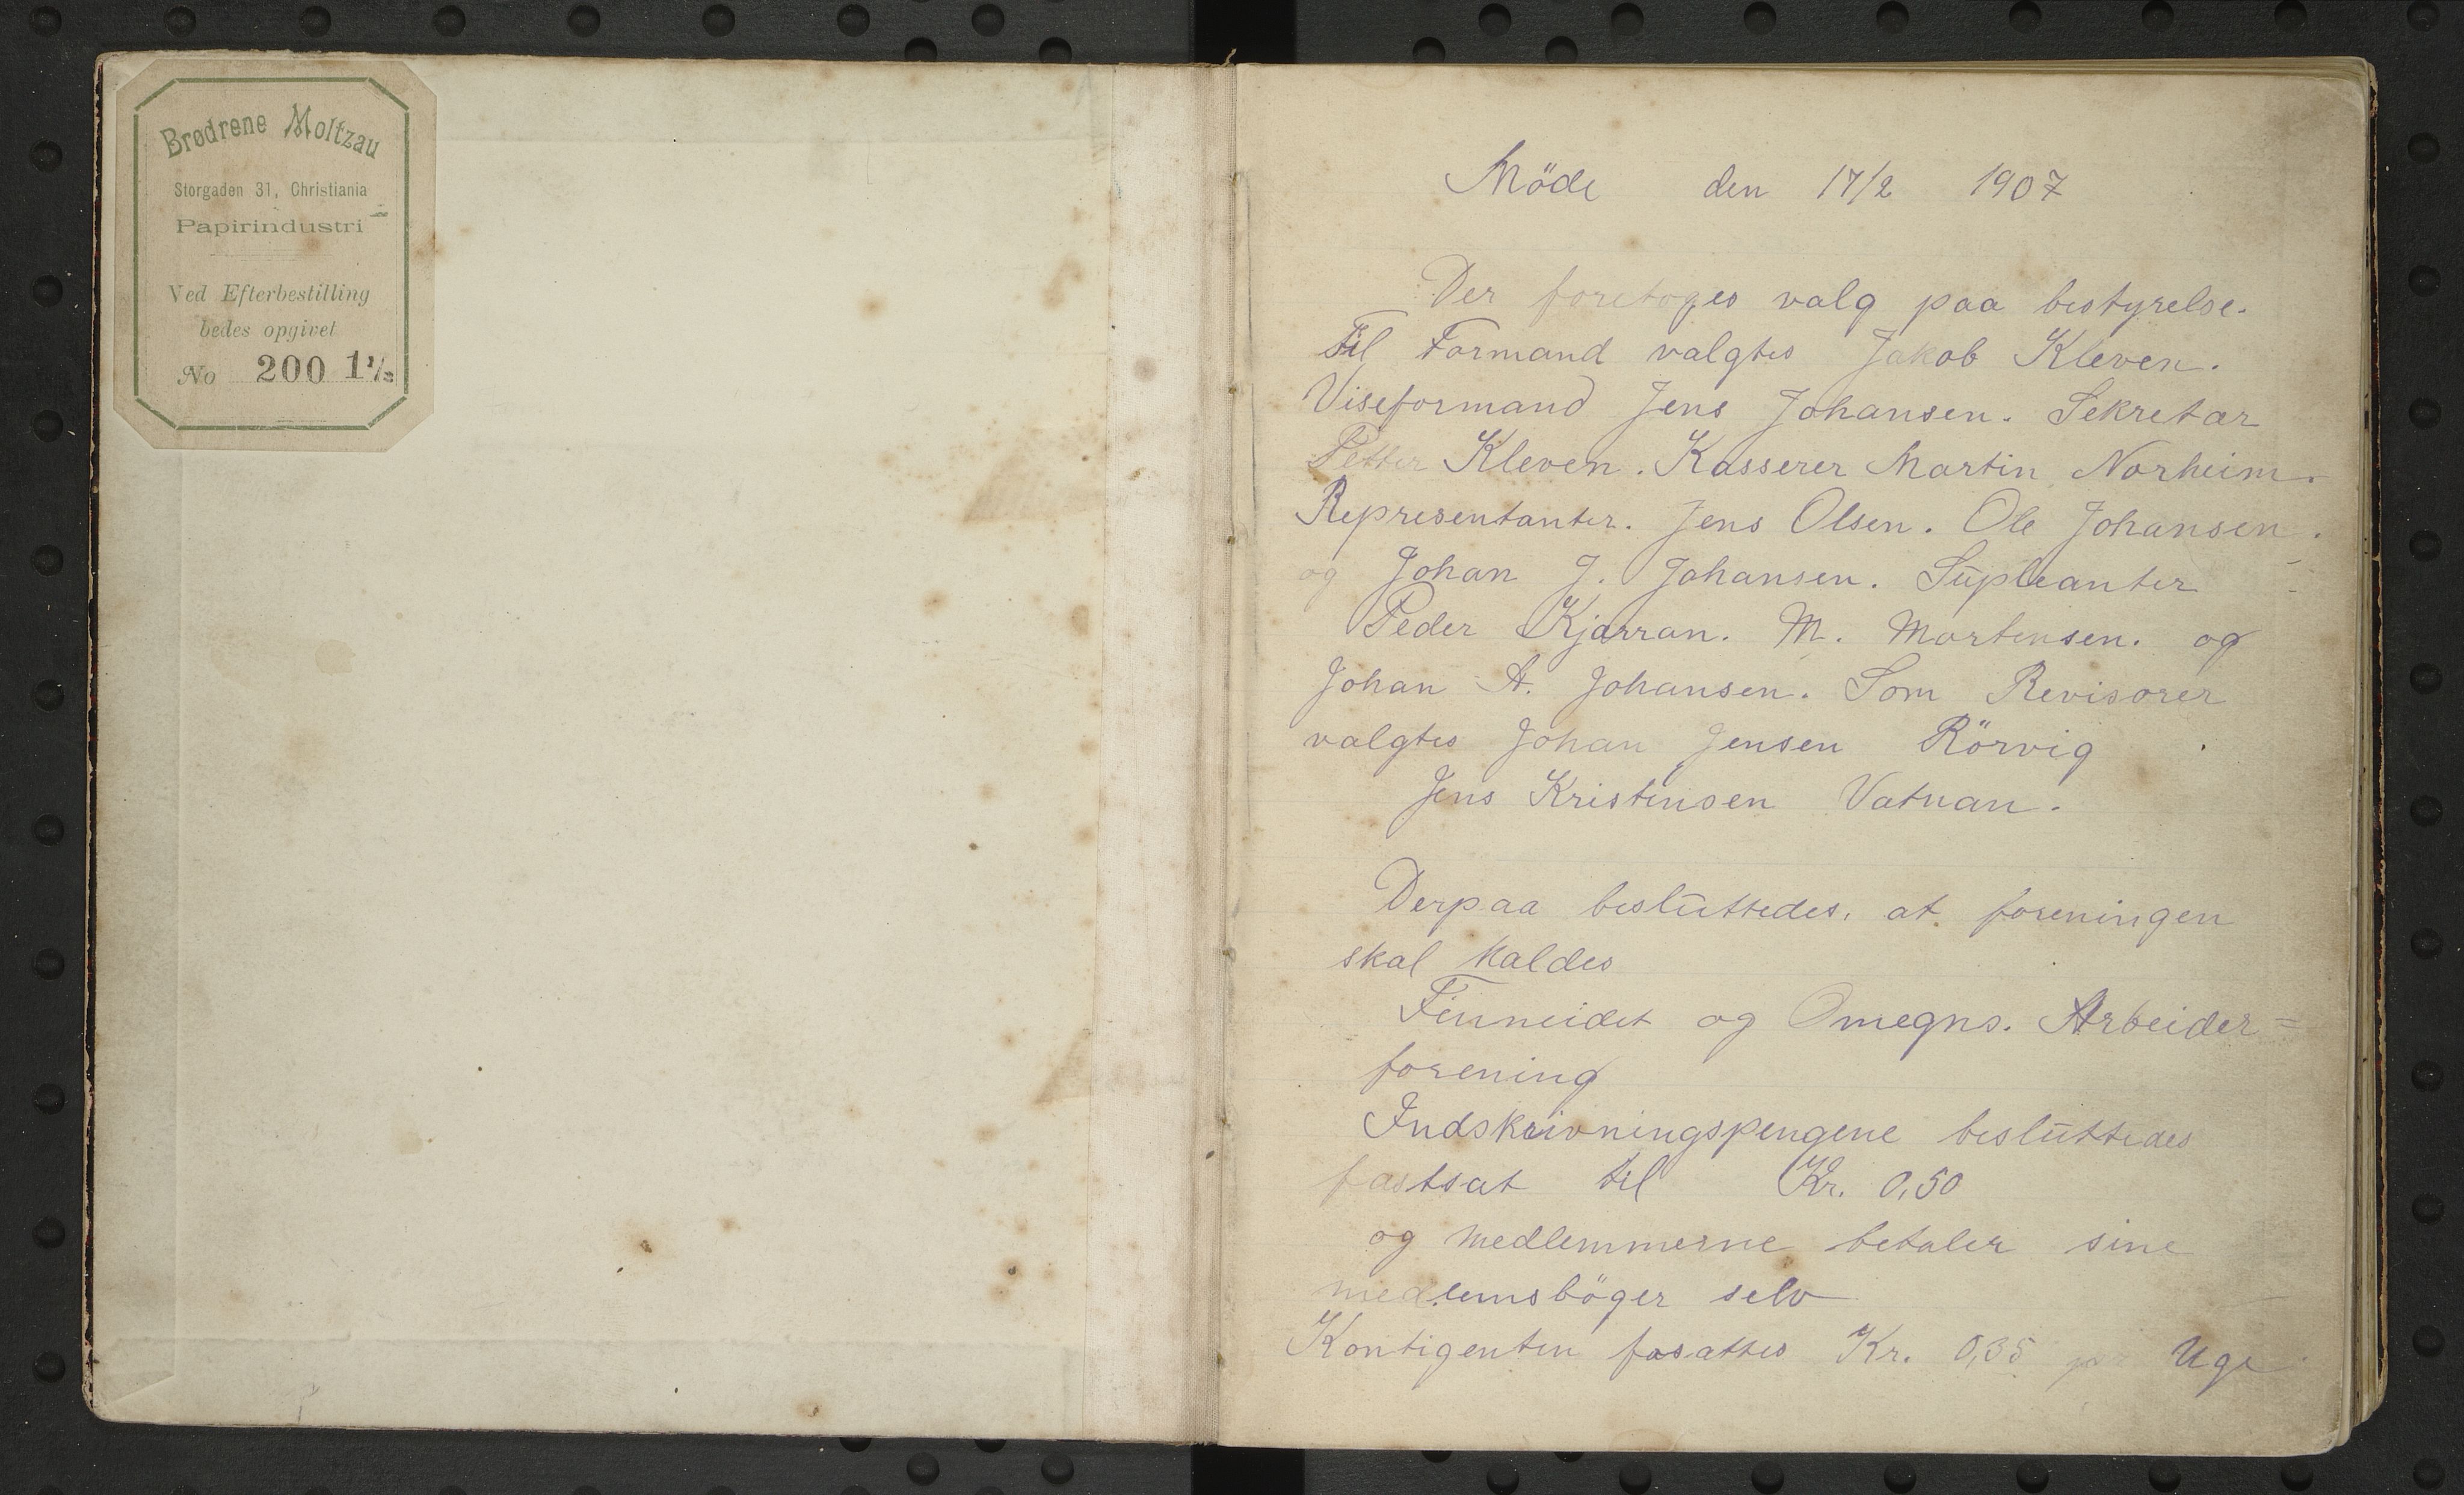 Brødrene Moltzau
Storgaden 31, Christiania
Papirindustri
Ved Efterbestilling
bedes opgivet
No 200 1 1/2
Möde den 17/2 1907
Der foretoges valg paa bestyrelse.
Til Formand valgtes Jakob Kleven.
Viseformand Jens Johansen. Sekretær
Petter Kleven. Kasserer Martin Norheim.
Representanter. Jens Olsen. Ole Johansen.
og Johan J. Johansen. Supleanter
Peder Kjærran. M. Mortensen. og
Johan A. Johansen. Som Revisorer
valgtes Johan Jensen Rörvig
Jens Kristensen Vatnan.
Derpaa besluttedes, at foreningen
skal kaldes
Finneidet og Omegns. Arbeider=
forening
Indskrivningspengene besluttedes
fastsat til Kr. 0,50
og medlemmerne betaler sine
medlemsböger selv
Kontigenten fasattes Kr. 0,35 pr Uge